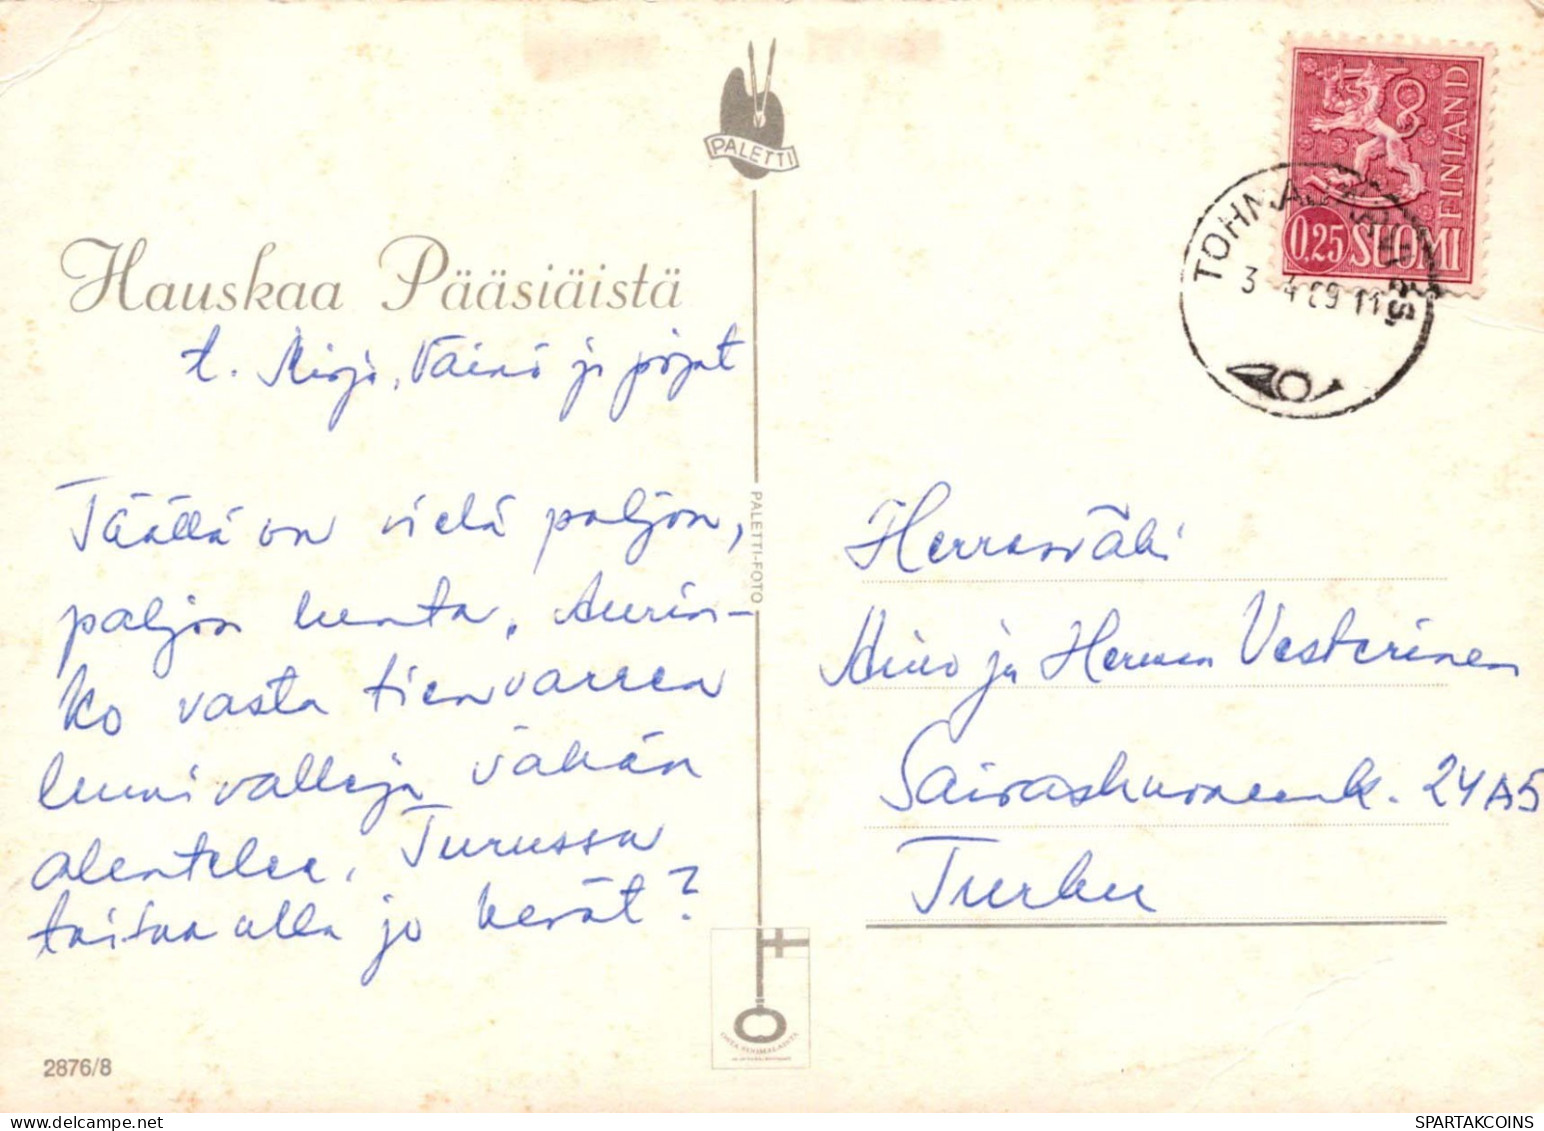 PALETTI
Hauskaa Pääsiäistä
t. Mirja, Väinö ja pojat
Täällä on vielä paljon,
paljon lunta. Aurin-
ko vasta tienvarren
lumivalleja vähän
alentelee. Turussa
taitaa olla jo kevät?
2876/8
PALETTI-FOTO
FINLAND
0,25 SUOMI
3 4 69 11
Herrasväki
Aino ja Herman Vesterinen
Sairashuoneenk. 24 A 5
Turku
SPARTAKCOINS